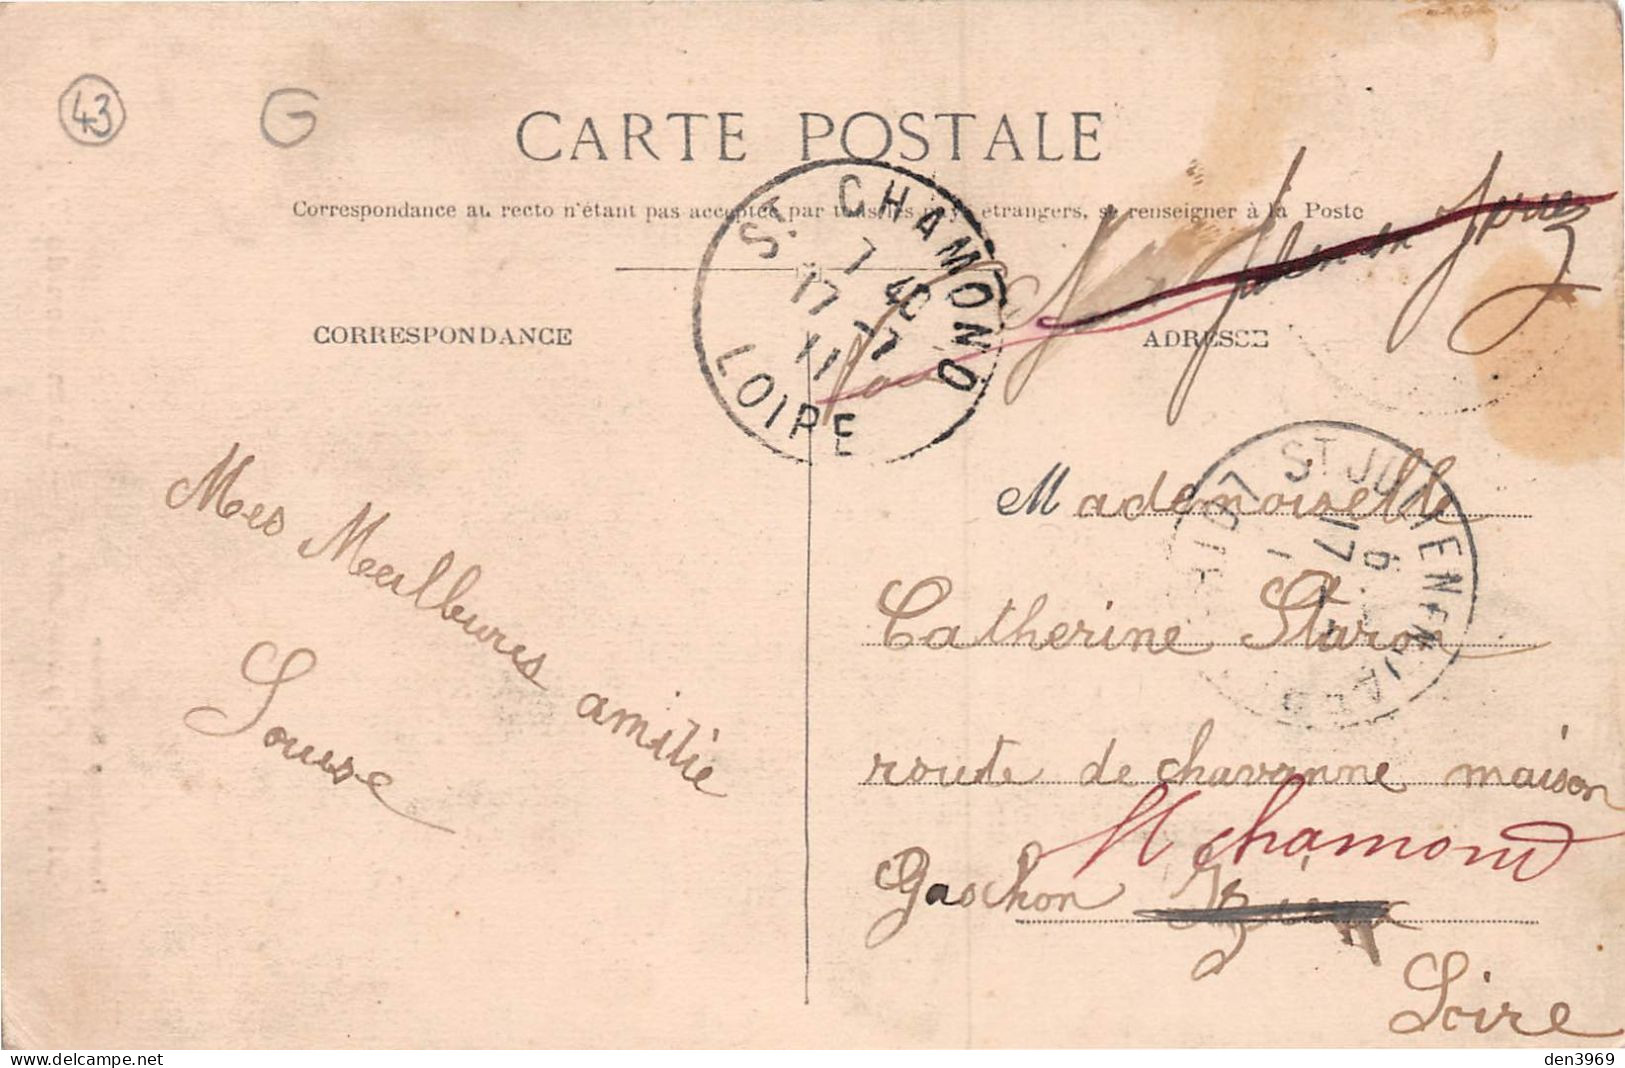 43
G
CARTE POSTALE
Correspondance au recto n'étant pas acceptée par tous les pays étrangers, se renseigner à la Poste
ST CHAMOND
7 40
17 - 7
11
LOIRE
CORRESPONDANCE
ADRESSE
ST JULIEN-EN-JAREZ
Mes Meilbures amitie
Louise
Mademoiselle
Catherine Staron
route de chavanne maison
Gaschon Izieux
St chamond
Loire
delcampe.net
den3969